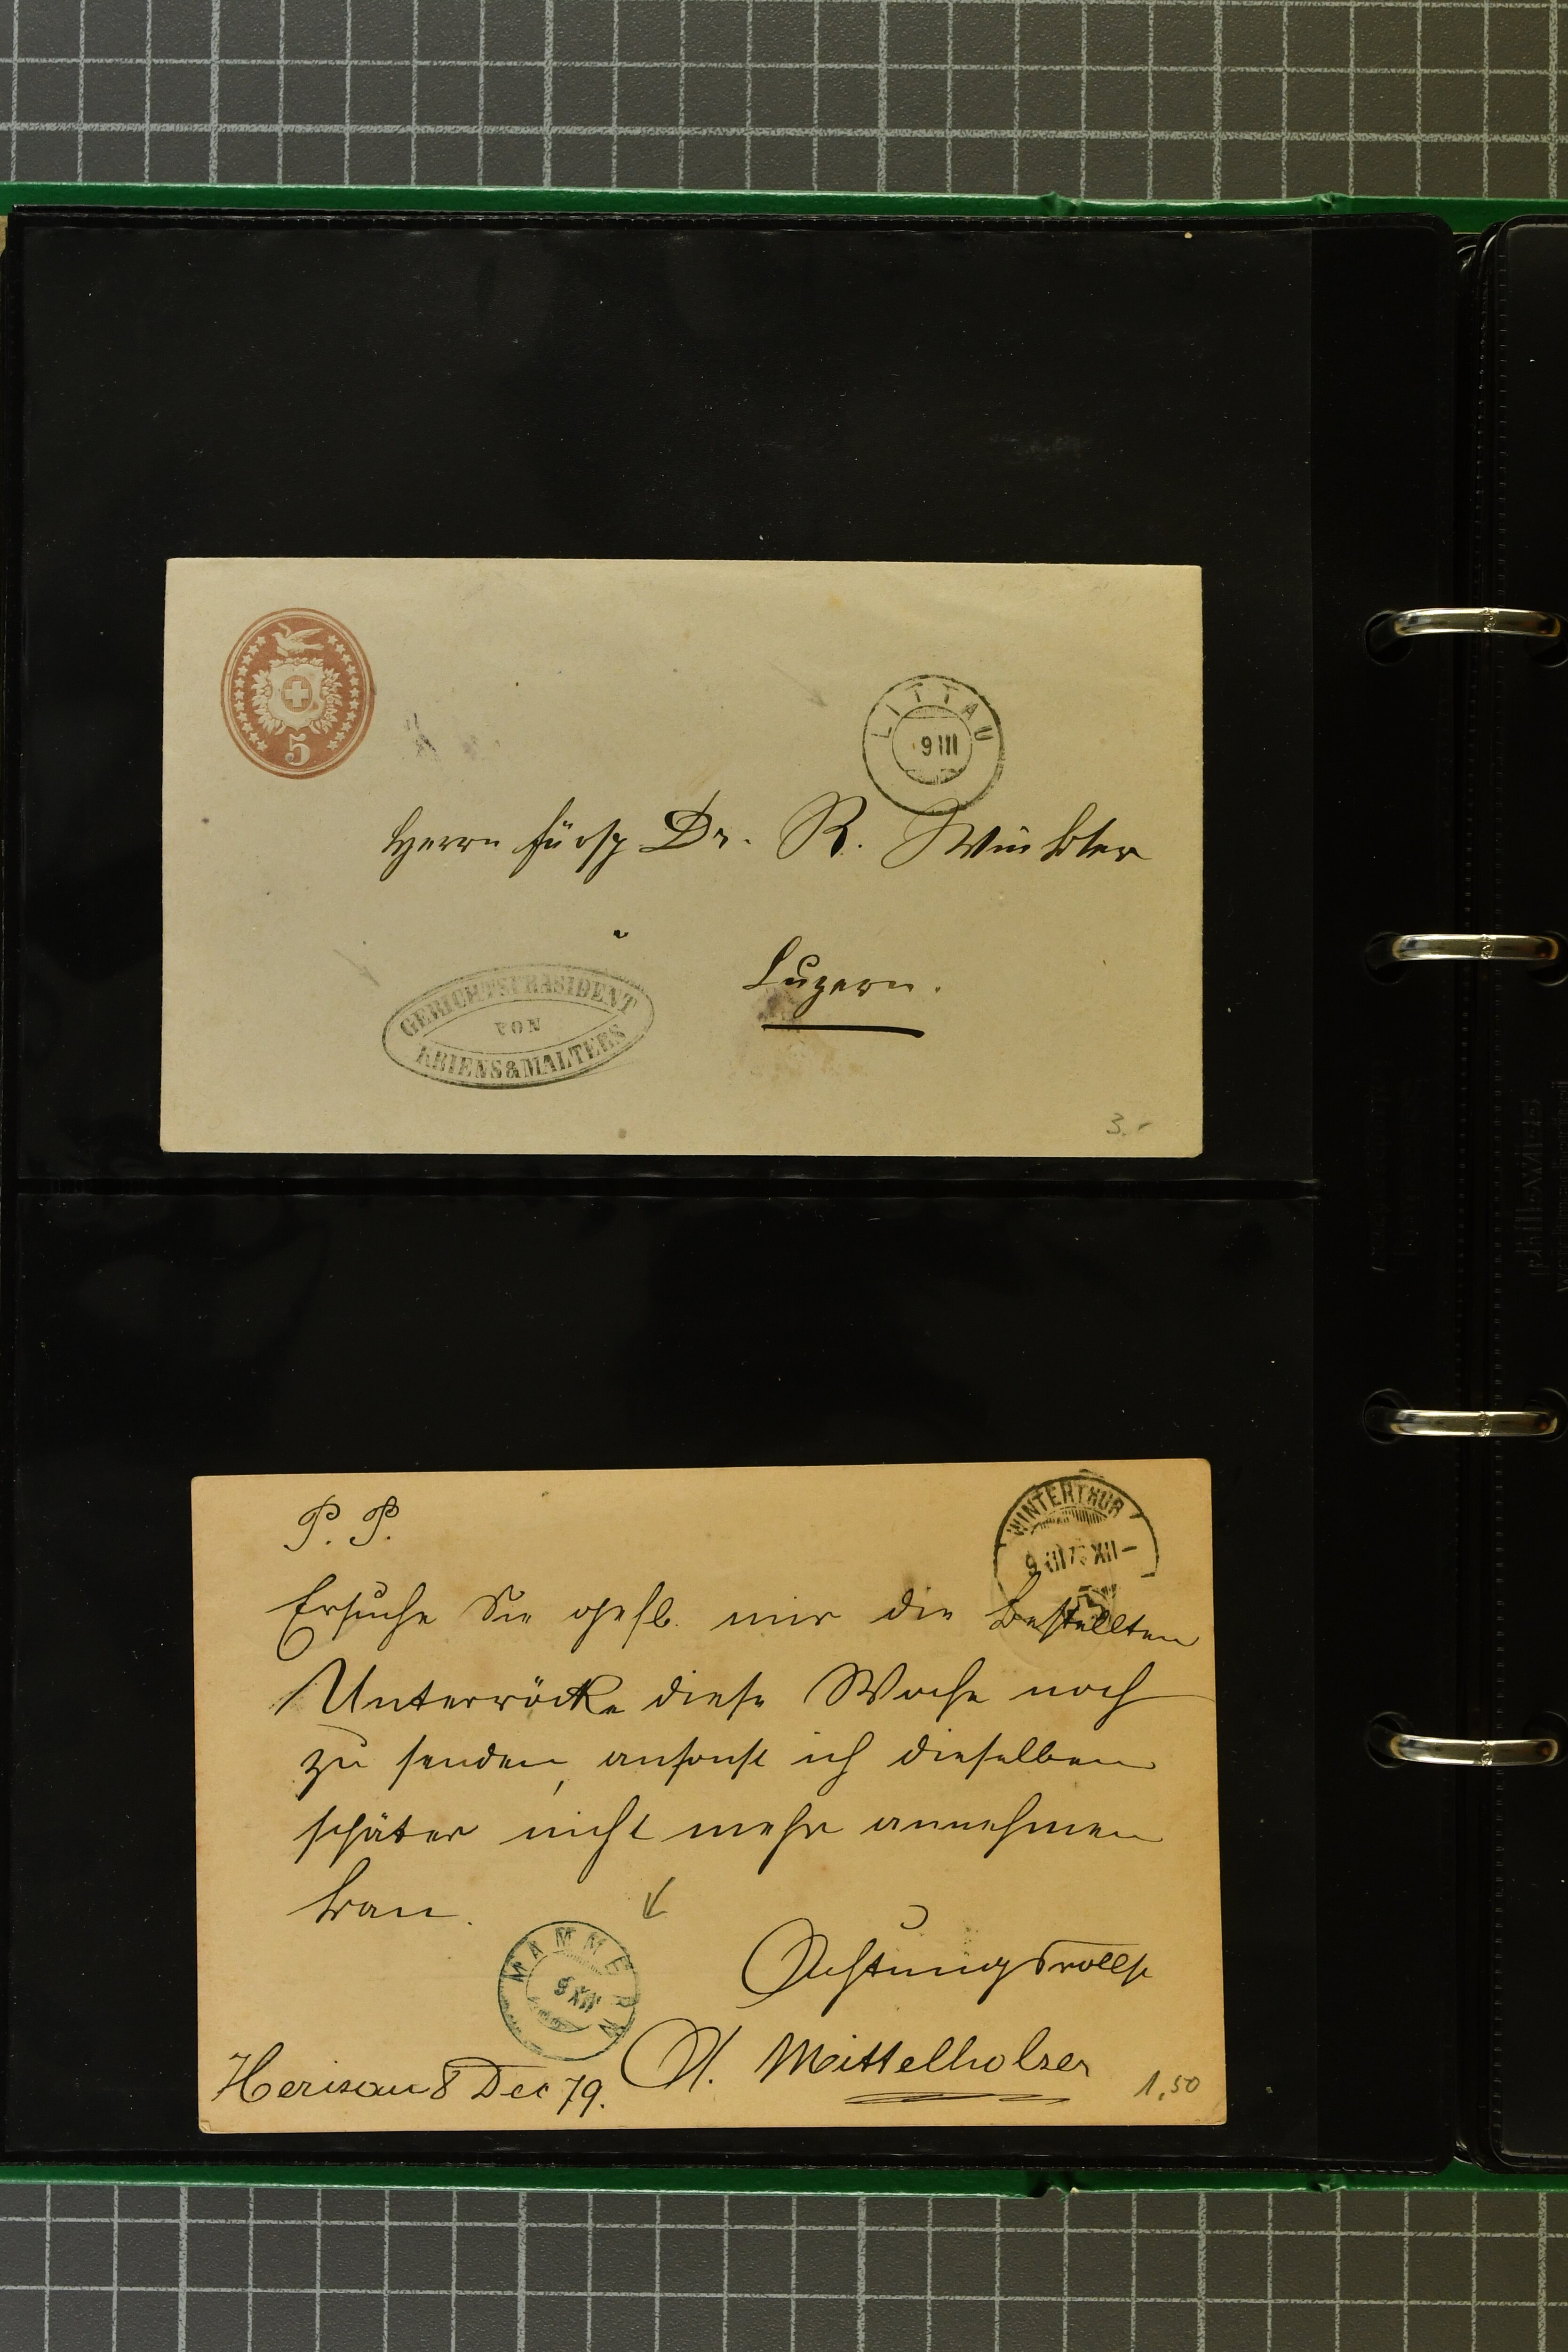 5
LITTAU
9 III
Herrn Fürsp Dr. R. Winkler
Luzern.
GERICHTSPRÄSIDENT
VON
KRIENS & MALTERS
3.-
P. P.
WINTERTHUR
Ersuche Sie gefl. mir die bestellten
Unterröcke diese Woche noch
zu senden, ansonst ich dieselben
später nicht mehr annehmen
kan.
MAMMERN
9 XII
Achtungsvollst
A. Mittelholzer
Herisau 8 Dec 79.
1.50